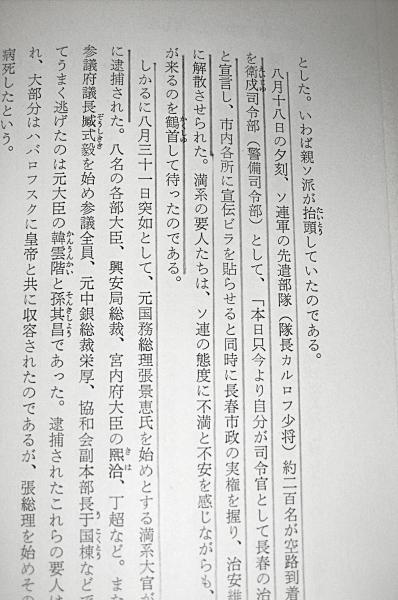 とした。いわば親ソ派が抬頭していたのである。
八月十八日の夕刻、ソ連軍の先遣部隊（隊長カルロフ少将）約二百名が空路到着
を衛戍司令部（警備司令部）として、「本日只今より自分が司令官として長春の治
と宣言し、市内各所に宣伝ビラを貼らせると同時に長春市政の実権を握り、治安維
に解散させられた。満系の要人たちは、ソ連の態度に不満と不安を感じながらも、
が来るのを鶴首して待ったのである。
しかるに八月三十一日突如として、元国務総理張景恵氏を始めとする満系大官が
に逮捕された。八名の各部大臣、興安局総裁、宮内府大臣の熙洽、丁超など。また
参議府議長臧式毅を始め参議全員、元中銀総裁栄厚、協和会副本部長于国棟などで
てうまく逃げたのは元大臣の韓雲階と孫其昌であった。逮捕されたこれらの要人は
れ、大部分はハバロフスクに皇帝と共に収容されたのであるが、張総理を始めその
病死したという。